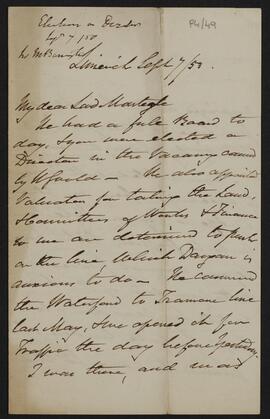 Election as Director
Sept 7/53
P4/49
Limerick Sept 7/53.
My dear Lord Monteagle
We had a full Board to
day, & you were elected a
Director in the Vacancy caused
by We also appointed
Valuators for taking the Land,
& Committees of Works & Finance
so we are determined to push
on the line which Dargan is
anxious to do — He commenced
the Waterford to Tramore line
last May, & we opened it for
Traffic the day before Yesterday.
I was there, and it was